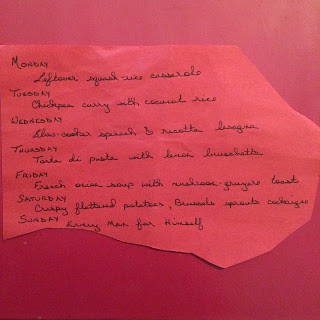 MONDAY
Leftover squash-rice casserole
TUESDAY
Chickpea curry with coconut rice
WEDNESDAY
Slow-cooker spinach & ricotta lasagna
THURSDAY
Torta di pasta with lemon bruschetta
FRIDAY
French onion soup with mushroom-gruyere toast
SATURDAY
Crispy flattened potatoes, Brussels sprouts
SUNDAY Every Man for Himself